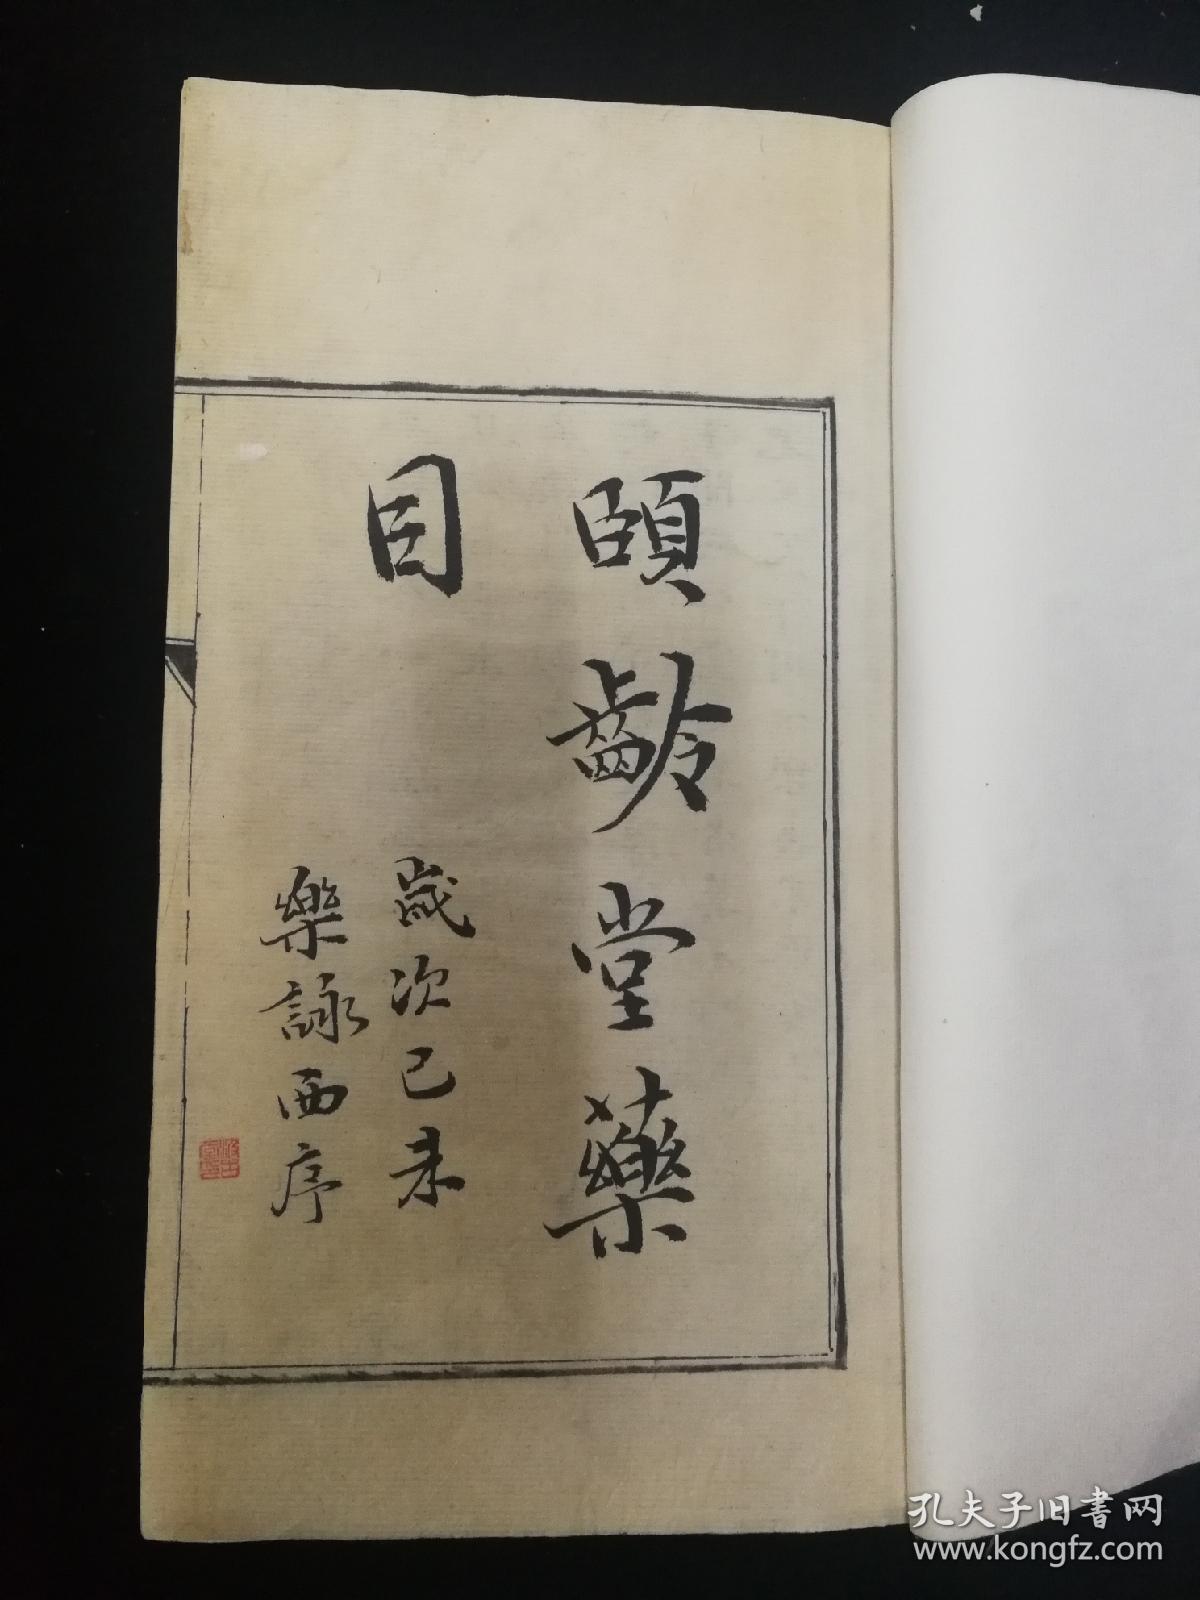 頤齡堂藥
目
歲次己未
樂詠西序
孔夫子旧书网
www.kongfz.com